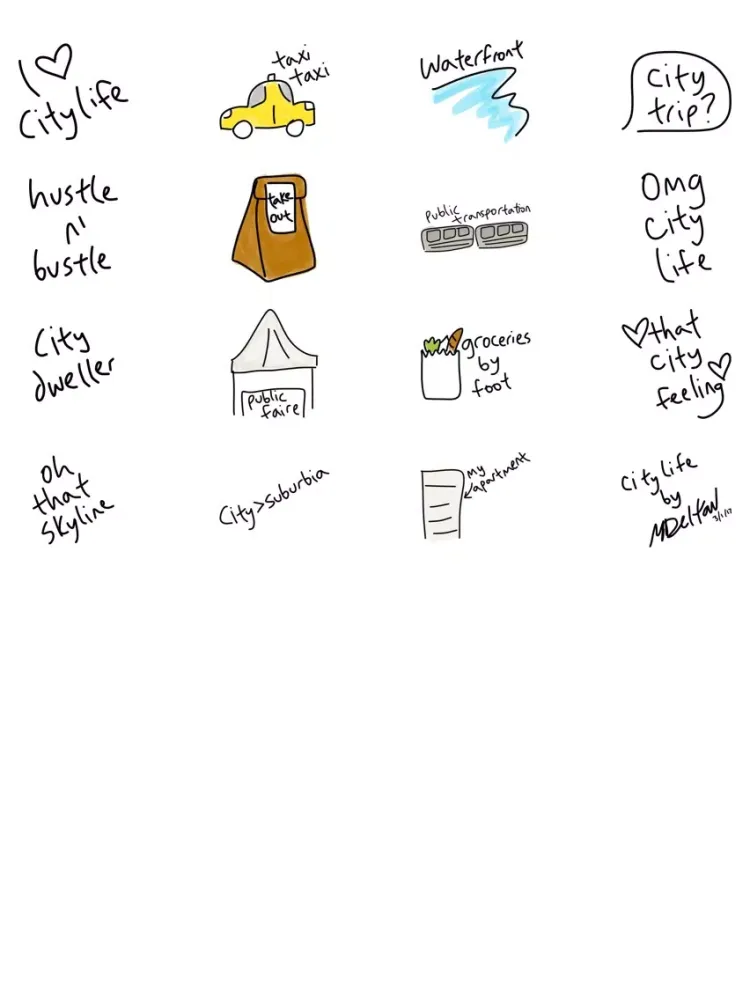 I
City life
taxi
taxi
Waterfront
City
trip?
hustle
n'
bustle
take
out
public
transportation
OMG
City
life
City
dweller
public
faire
groceries
by
foot
that
city
feeling
oh
that
skyline
City>suburbia
my
apartment
City life
by